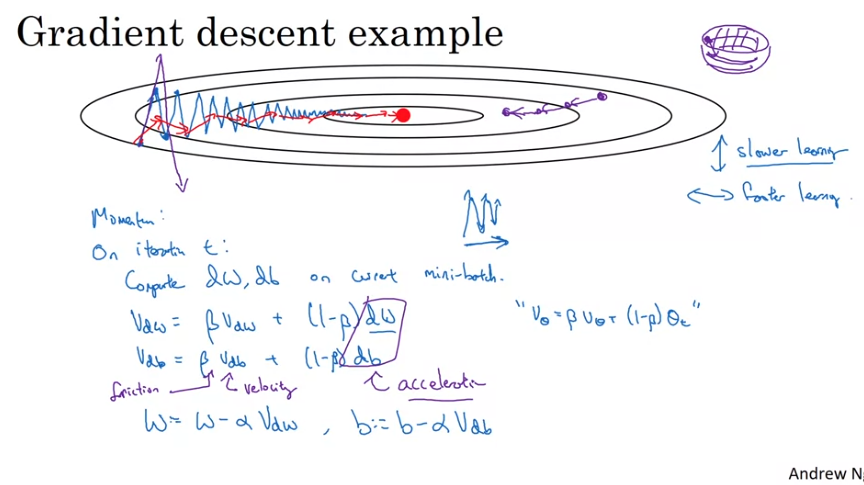 Gradient descent example
slower learning
faster learning.
Momentum:
On iteration t:
Compute dW, db on current mini-batch.
Vdw = β Vdw + (1-β) dW
"Vθ = β Vθ + (1-β) θt"
Vdb = β Vdb + (1-β) db
friction velocity acceleration
W = W - α Vdw , b := b - α Vdb
Andrew N